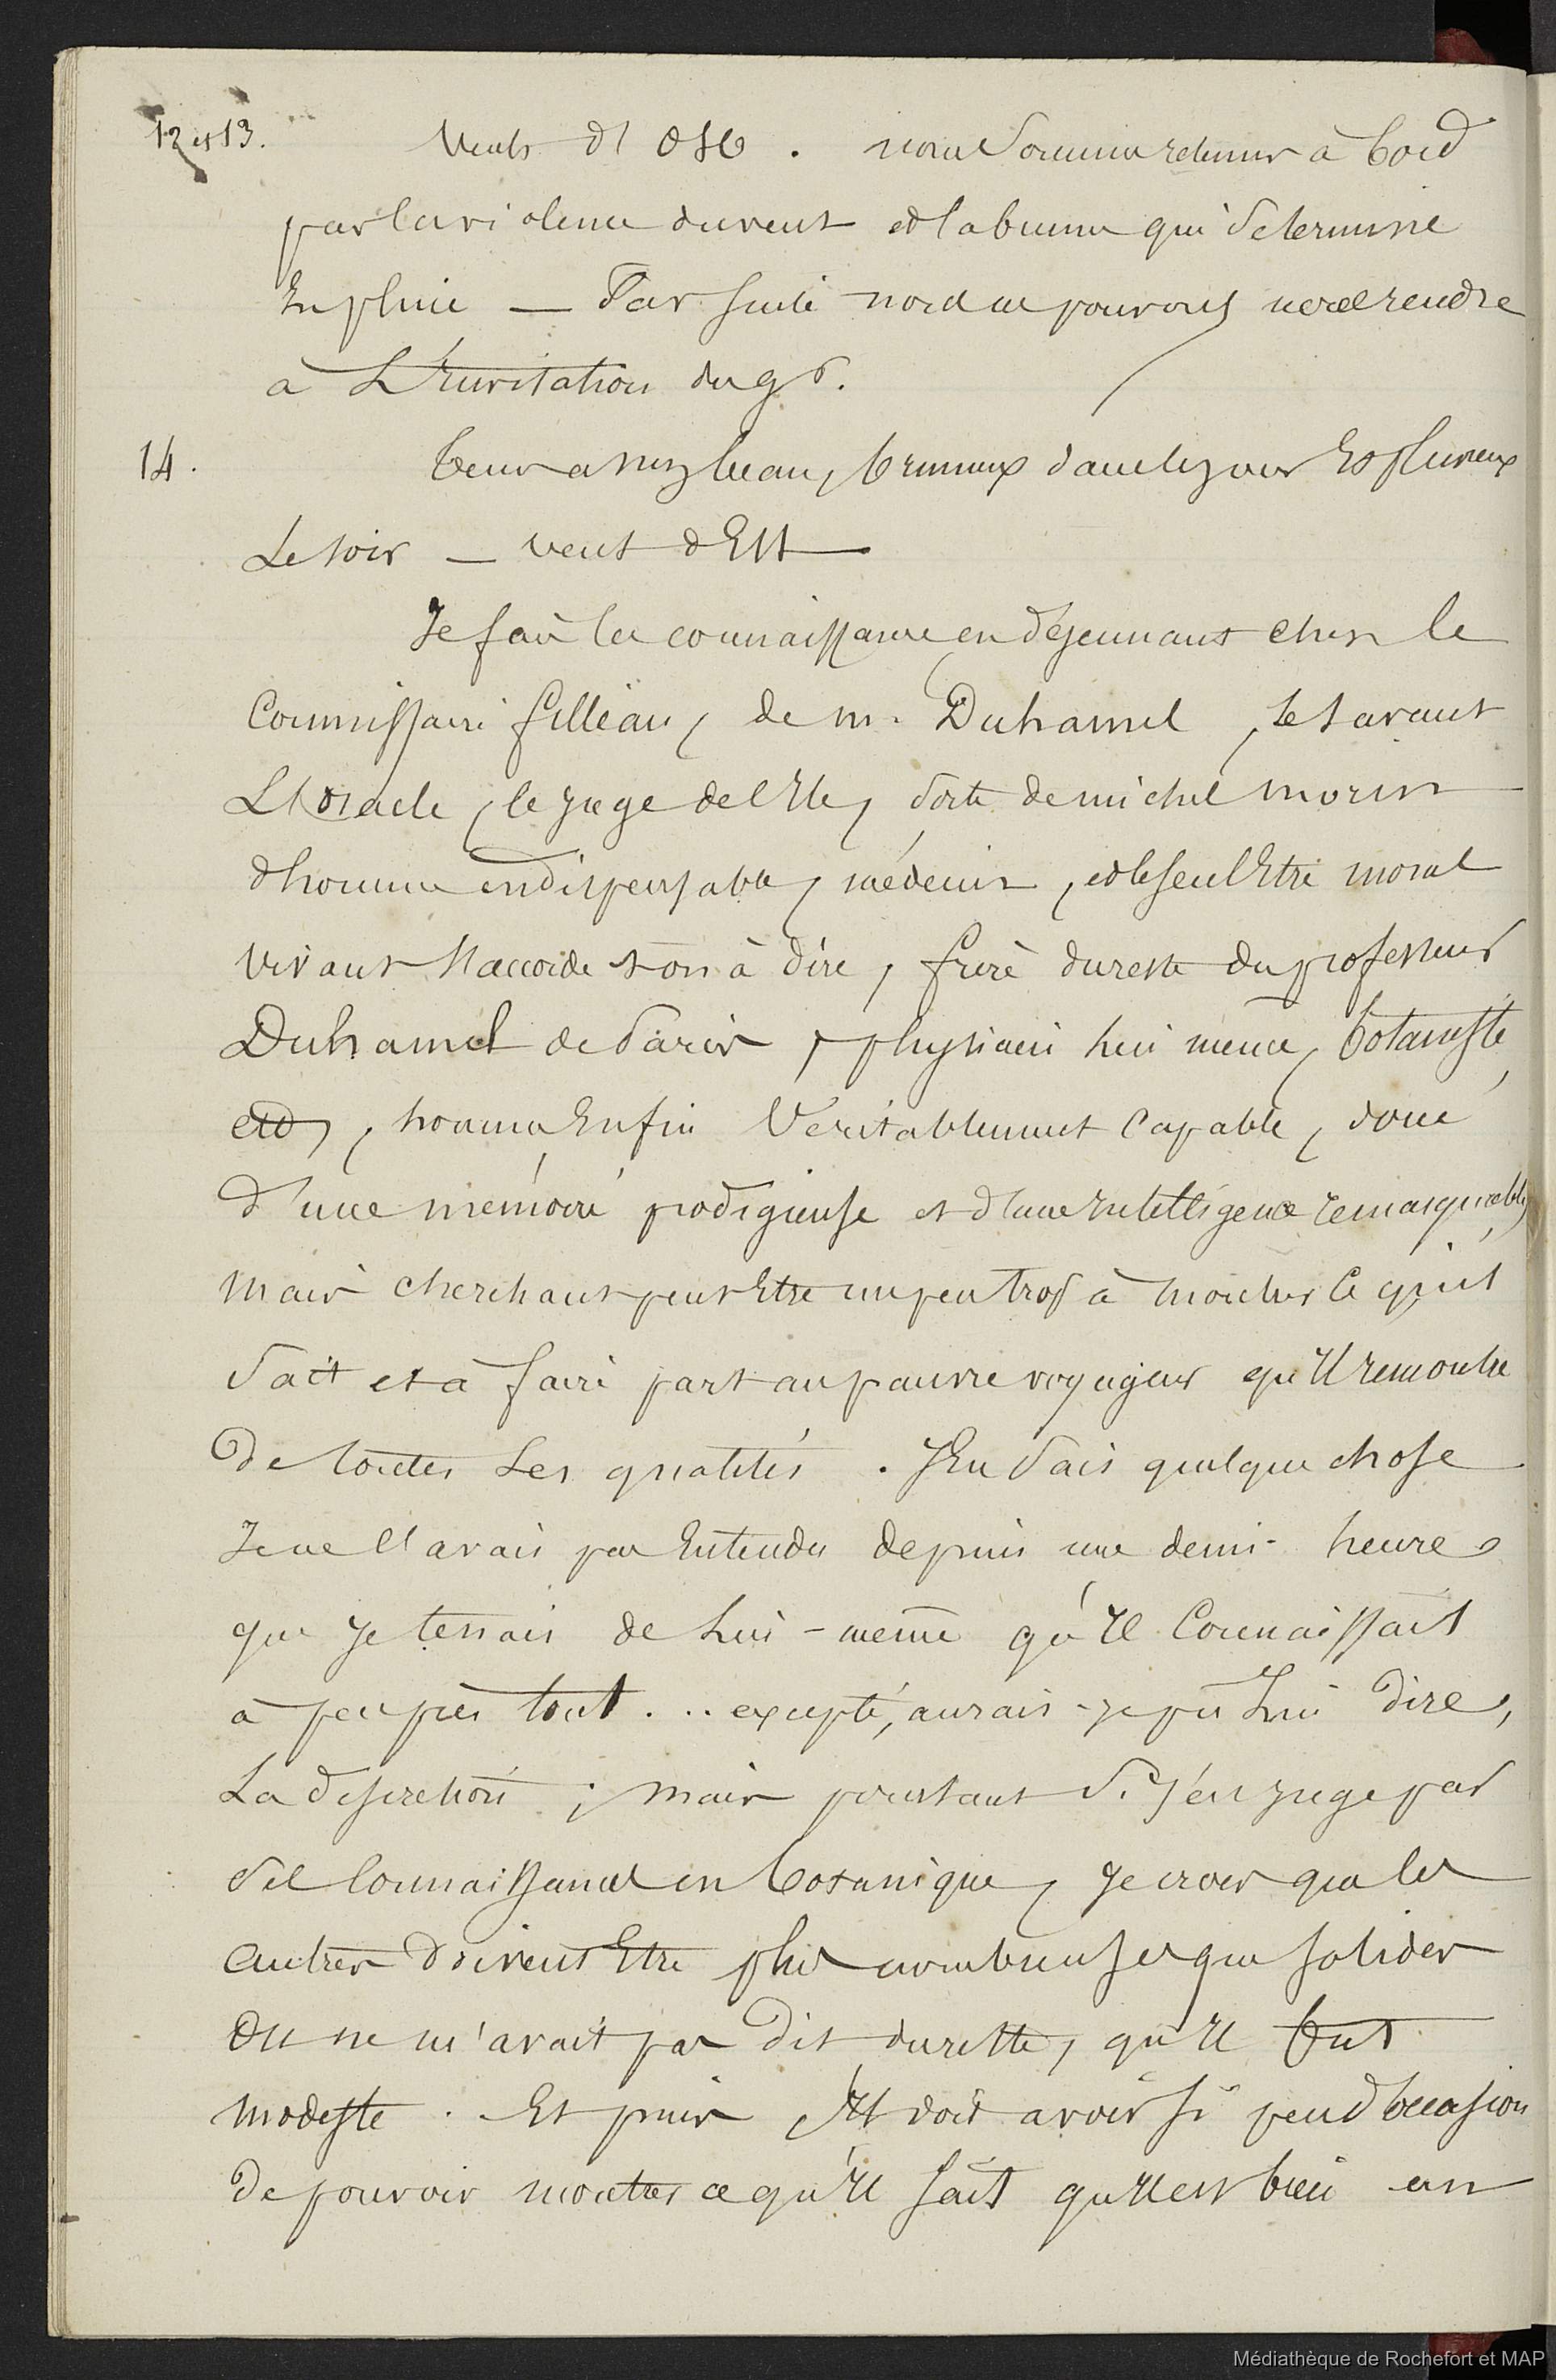 12 et 13. Vents d'OSO. nous sommes retenus à bord
par la violence du vent et la brume qui se termine
En pluie — Par suite nous ne pouvons nous rendre
à L'Envitation du gr.
14. Tems assez beau, brumeux dans le jour Et pluvieux
Le soir — vent d'Est
Je fais la connaissance en déjeunant chez le
Commissaire filleau, de m. Duhamel, le savant
L'oracle, le juge de l'Ile, sorte de michel morin
d'homme indispensable, médecin, et le seul Etre moral
vivant s'accorde t-on à dire, frère du reste du professeur
Duhamel de Paris, physicien lui même, botaniste,
etc, homme Enfin Véritablement Capable, doué
d'une mémoire prodigieuse et d'une Intelligence remarquable,
Mais cherchant peut Etre un peu trop à montrer ce qu'il
Sait et à faire part au pauvre voyageur qu'Il rencontre
De toutes Ses qualités. J'En Sais quelque chose
Je ne l'avais pas Entendu depuis une demi-heure
que Je tenais de Lui-même qu'Il Connaissait
à peu près tout... excepté, aurais-je pu Lui dire,
La discrétion; Mais pourtant Si j'en juge par
Ses Connaissances en botanique, Je crois que les
autres doivent Etre plus nombreuses que solides
On ne m'avait pas dit du reste, qu'Il fut
modeste. Et puis Il doit avoir si peu d'occasion
De pouvoir montrer ce qu'Il sait qu'Il est bien en
Médiathèque de Rochefort et MAP